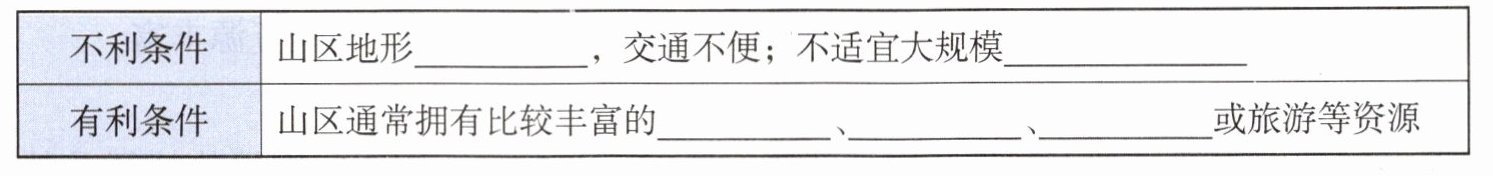 不利条件 山区地形__________，交通不便；不适宜大规模______________
有利条件 山区通常拥有比较丰富的__________、__________、__________或旅游等资源